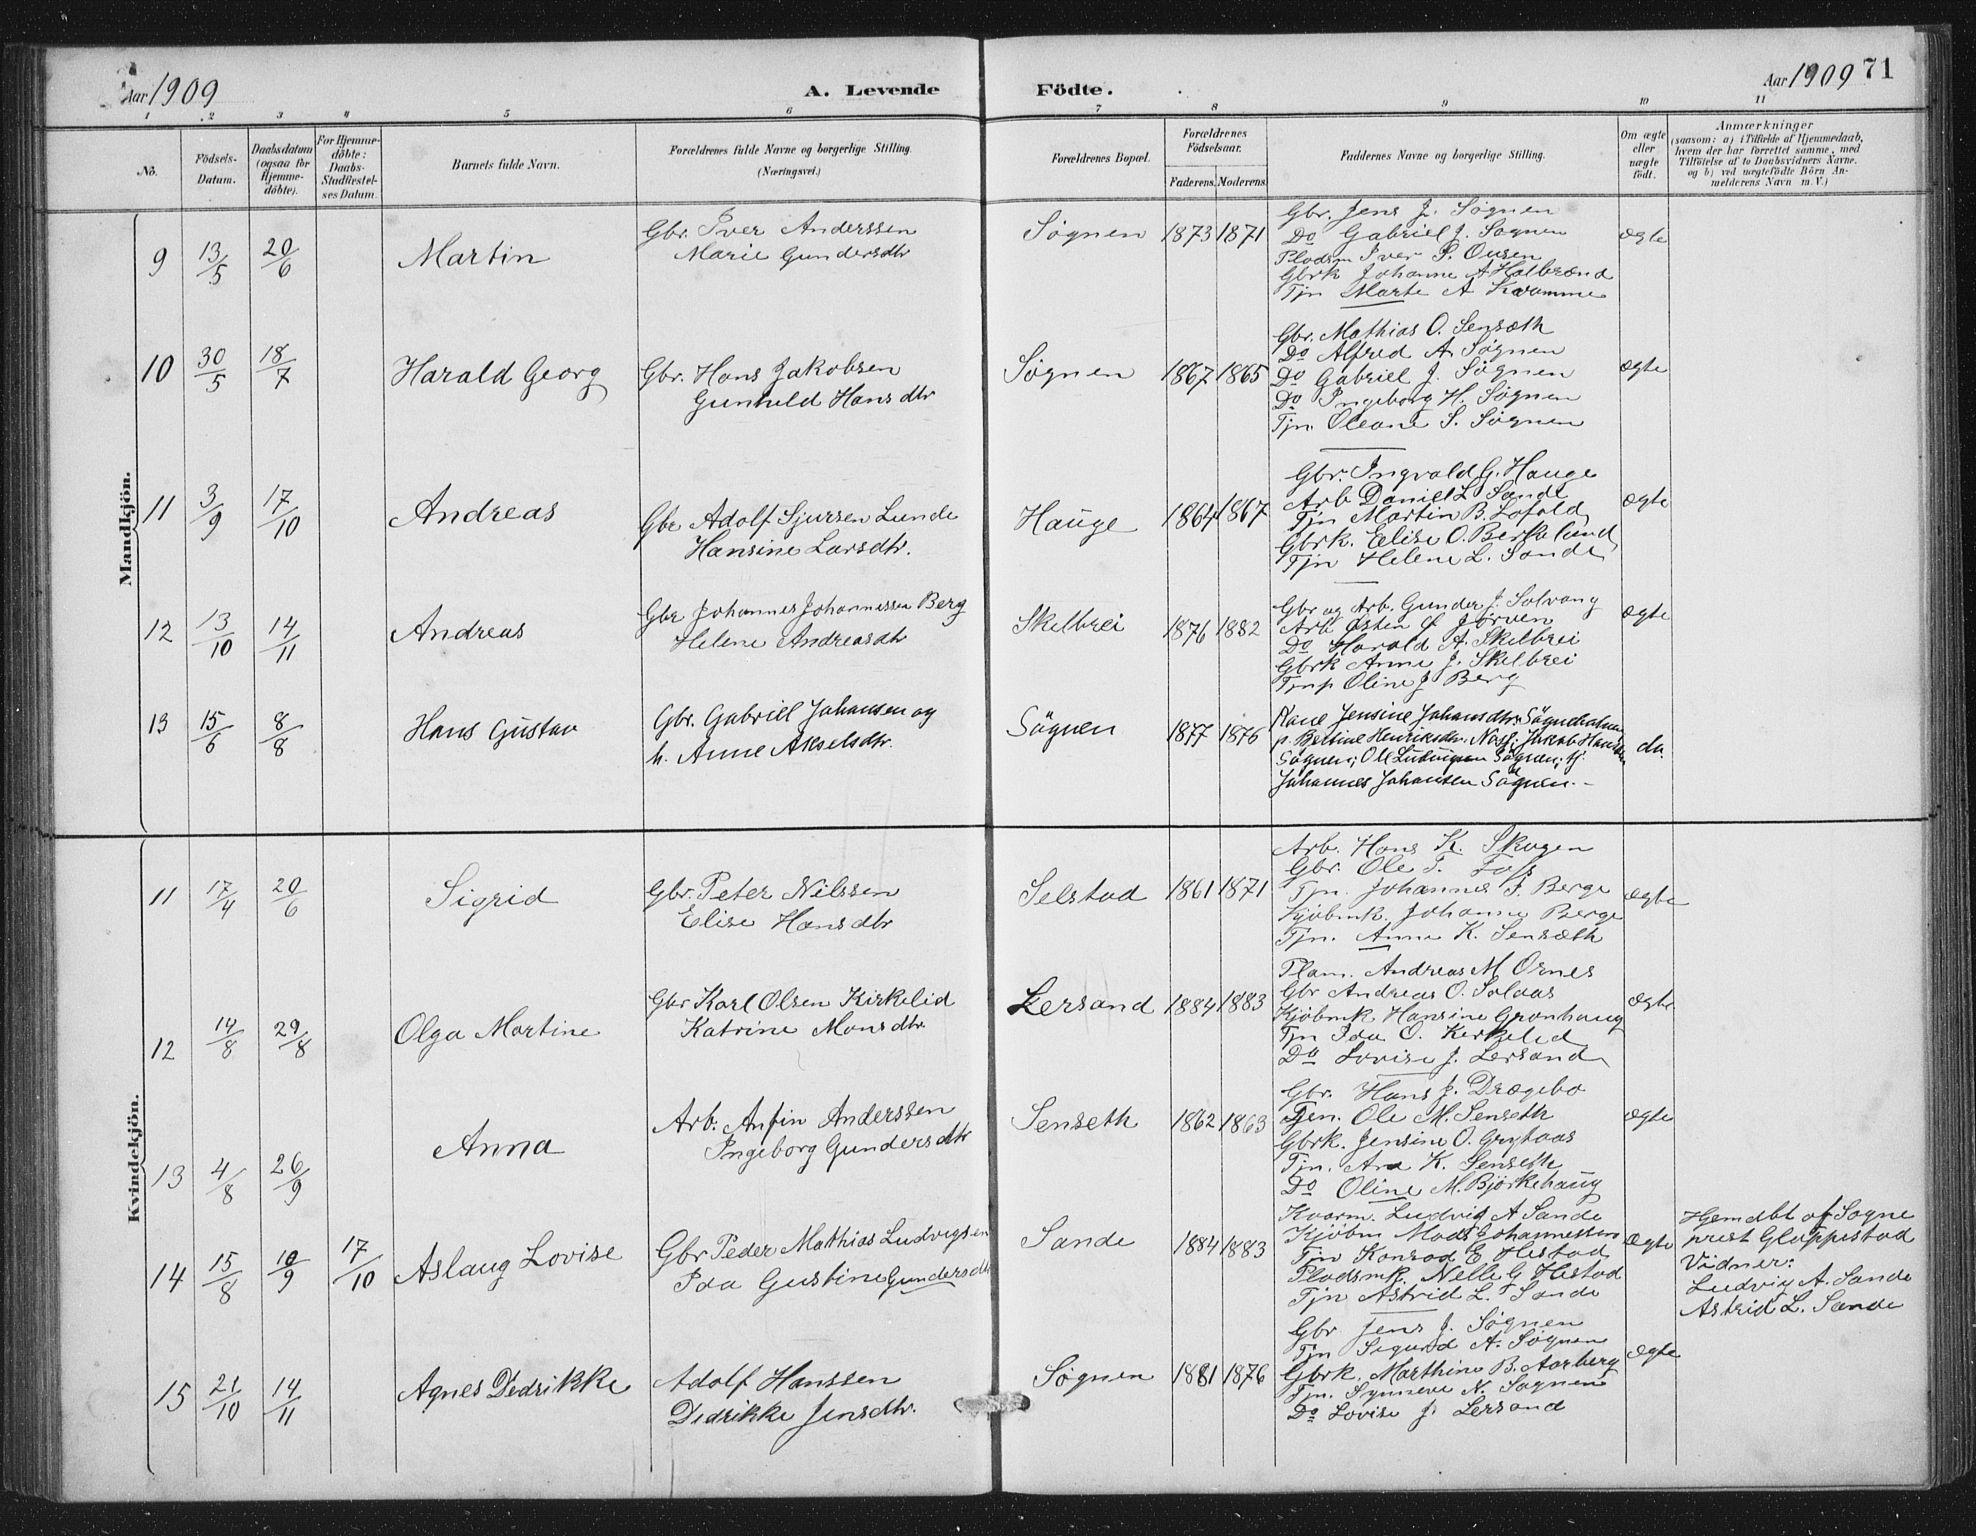 Aar 1909
A. Levende
Födte.
Aar 1909
71
1 2 3 4 5 6 7 8 9 10 11
No.
Födsels-
Datum.
Daabsdatum
(ogsaa for
Hjemme-
döbte).
For Hjemme-
döbte:
Daabs-
Stadfæstel-
ses Datum.
Barnets fulde Navn.
Forældrenes fulde Navne og borgerlige Stilling.
(Næringsvei.)
Forældrenes Bopæl.
Forældrenes
Födselsaar.
Faderens. Moderens.
Faddernes Navne og borgerlige Stilling.
Om ægte
eller
uægte
födt.
Anmærkninger
(saasom: a) i Tilfælde af Hjemmedaab,
hvem der har forrettet samme, med
Tilföielse af to Daabsvidners Navne.
og b) ved uægtefödte Börn An-
melderens Navn m. V.)
Mandkjön.
9 13/5 20/6 Martin
Gbr. Iver Anderssen
Marie Gundersdtr
Søgnen 1873 1871
Gbr. Jens J. Søgnen
Do Gabriel J. Søgnen
Pladsm Iver P. Ousen
Gbrk Johanne A Halbrænd
Tjn Marte A Kvamme
ægte
10 30/5 18/7 Harald Georg
Gbr. Hans Jakobsen
Gunhild Hansdtr
Søgnen 1867 1865
Gbr. Mathias O. Senseth
Do Alfred A. Søgnen
Do Gabriel J. Søgnen
Do Ingeborg H. Søgnen
Tjn. Oleane S. Søgnen
ægte
11 3/9 17/10 Andreas
Gbr Adolf Sjursen Lunde
Hansine Larsdtr.
Hauge 1864 1867
Gbr. Ingvald G. Hauge
Arb Daniel L Sande
Tjn Martin B. Lofald
Gbrk. Elise O. Berkeland
Tjn Helene L. Sande
ægte
12 13/10 14/11 Andreas
Gbr Johannes Johannessen Berg
Helene Andreasdtr
Skelbrei 1876 1882
Gbr og Arb. Gunder J. Solvang
Arb Østen J Jorven
Do Harald A. Skelbrei
Gbrk Anne J. Skelbrei
Tjnp Oline J Berg
ægte
13 15/6 8/8 Hans Gustav
Gbr. Gabriel Johansen og
h. Anne Akselsdtr.
Sögnen 1877 1876
Kone Jensine Johansdtr. Sögneholmen
p. Bertine Henriksdtr. Noss; Jakob Hansen
Sögnen; Ole Ludvigsen Sögnen; tj.
Johannes Johansen Sögnen. -
do.
Kvindekjön.
11 17/4 20/6 Sigrid
Gbr. Peter Nilssen
Elise Hansdtr
Selstad 1861 1871
Arb. Hans K. Skogen
Gbr. Ole T. Foss
Tjn. Johannes J. Berge
Kjöbmk. Johanne Berge
Tjn. Anna K. Senseth
ægte
12 14/8 29/8 Olga Martine
Gbr Karl Olsen Kirkelid
Katrine Monsdtr
Lersand 1884 1883
Plam. Andreas M Ornes
Gbr Andreas O. Solaas
Kjöbmk Hansine Grønhaug
Tjn Ida O. Kirkelid
Do Lovise J. Lersand
ægte
13 4/8 26/9 Anna
Arb: Anfin Anderssen
Ingeborg Gundersdtr
Senseth 1862 1863
Gbr. Hans J. Drægebo
Tjen. Ole M. Senseth
Gbrk. Jensine O. Grytaas
Tjn. Ara K. Senseth
Do Oline M. Björkehaug
ægte
14 15/8 10/9 17/10 Aslaug Lovise
Gbr Peder Mathias Ludvigsen
Ida Gustine Gundersdtr
Sande 1884 1883
Kvarm. Ludvig A Sande
Kjöbm Mads Johannessen
Tjn Konrad E Hestad
Pladsmk. Nelle G Hestad
Tjn Astrid L. Sande
ægte
Hjemdbt af Sogne
prest Gloppestad
Vidner:
Ludvig A. Sande
Astrid L. Sande
15 21/10 14/11 Agnes Dedrikke
Adolf Hanssen
Dedrikke Jensdtr.
Søgnen 1881 1876
Gbr Jens J. Søgnen
Tjn Sigurd A. Søgnen
Gbrk. Marthine B. Aarberg
Tjn. Synneve N. Søgnen
Do Lovise J. Lersand
ægte